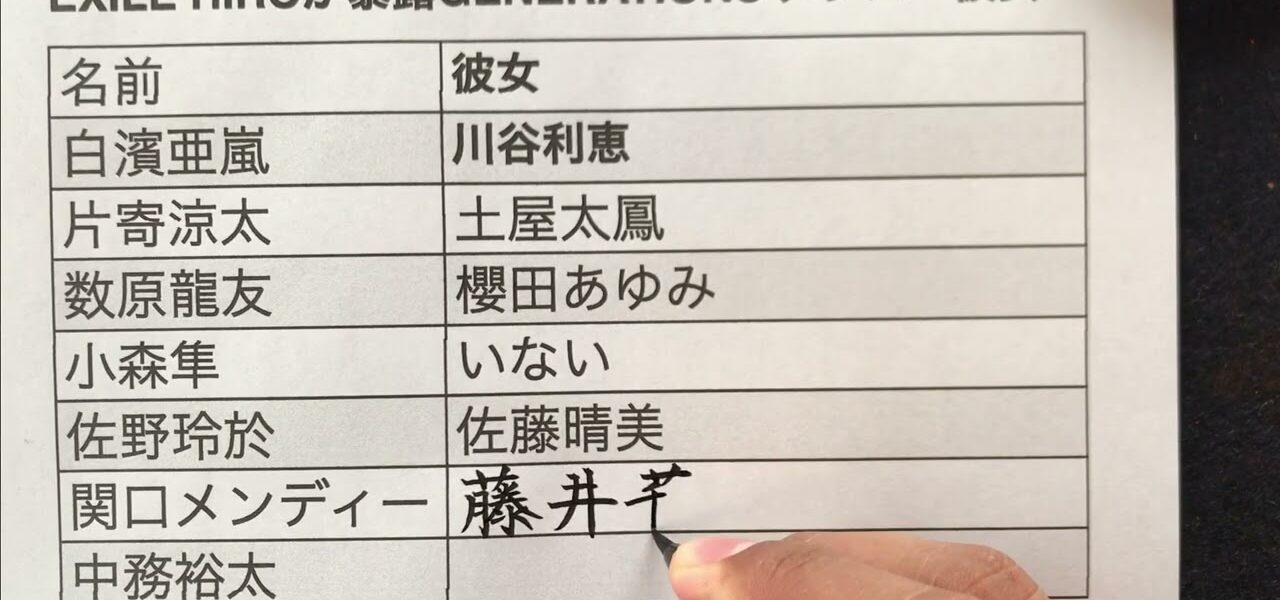 EXILE HIROが暴露GENERATIONS
名前 彼女
白濱亜嵐 川谷利恵
片寄涼太 土屋太鳳
数原龍友 櫻田あゆみ
小森隼 いない
佐野玲於 佐藤晴美
関口メンディー 藤井
中務裕太